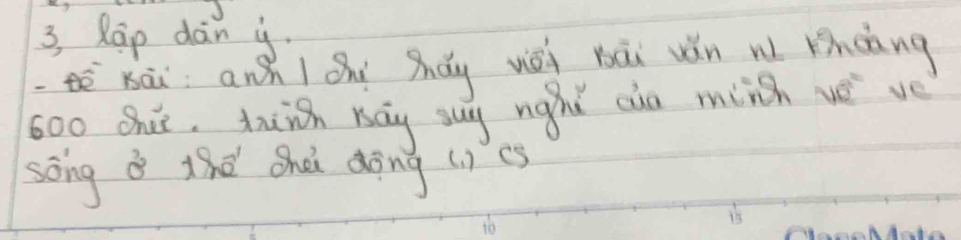 3, Lập dàn ý.
- Đề bài: anh / chị hãy viết bài văn nl khoảng
600 chữ. trình bày suy nghĩ của mình về vc
sống ở thế chủ động (.) cs
10
15
ClassMate